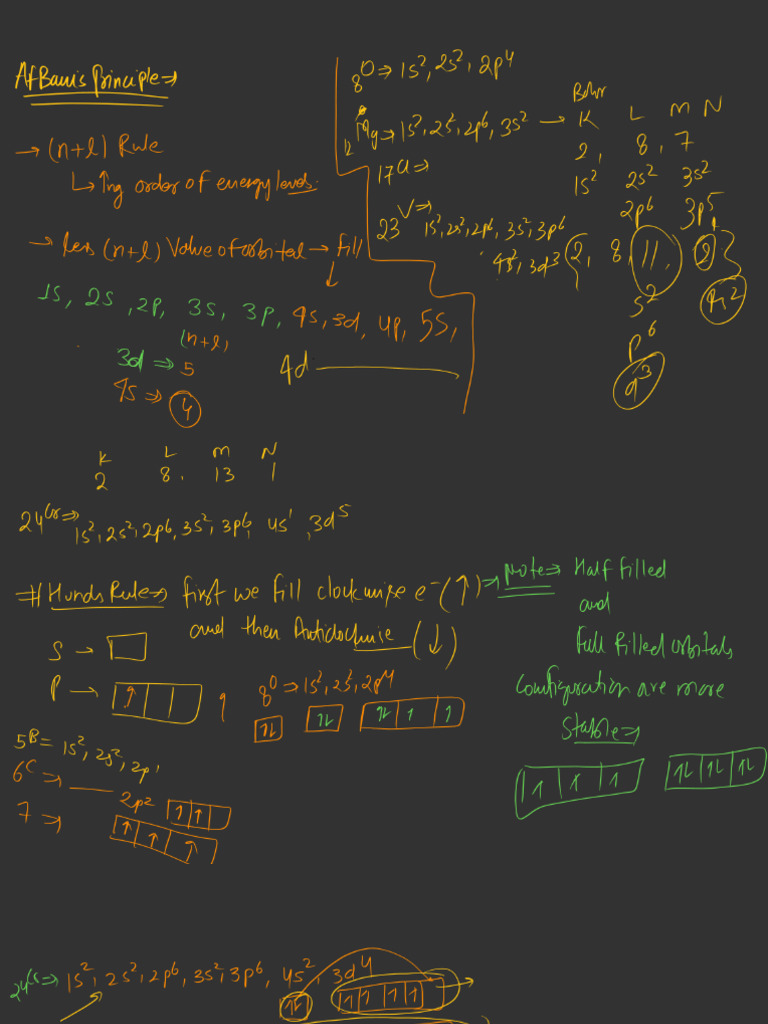 AfBau's Principle ⇒
→ (n+l) Rule
↳ ↑ing order of energy levels.
→ less (n+l) Value of orbital → fill
1s, 2s, 2p, 3s, 3p, 4s, 3d, 4p, 5s,
(n+l)
3d ⇒ 5
4s ⇒ 4
4d
8O ⇒ 1s², 2s², 2p⁴
12Mg ⇒ 1s², 2s², 2p⁶, 3s² →
17Cl ⇒
23V ⇒ 1s², 2s², 2p⁶, 3s², 3p⁶
4s², 3d³
Bohr
K L M N
2, 8, 7
1s² 2s² 3s²
2p⁶ 3p⁵
2, 8, 11, 2
s²
p⁶
d³
4s²
K L M N
2 8. 13 1
24Cr ⇒ 1s², 2s², 2p⁶, 3s², 3p⁶, 4s¹, 3d⁵
# Hunds Rule ⇒ first we fill clockwise e⁻ (↑)
and then Anticlockwise (↓)
⇒ Note ⇒ Half filled
and
full filled orbitals
Configuration are more
Stable ⇒
S →
P → ↑
8O ⇒ 1s², 2s², 2p⁴
↑↓ ↑↓ ↑↓ ↑ ↑
↑ ↑ ↑ ↑↓ ↑↓ ↑↓
5B = 1s², 2s², 2p¹
6C ⇒ 2p² ↑ ↑
7 ⇒ ↑ ↑ ↑
24Cr ⇒ 1s², 2s², 2p⁶, 3s², 3p⁶, 4s², 3d⁴
↑↓ ↑ ↑ ↑ ↑